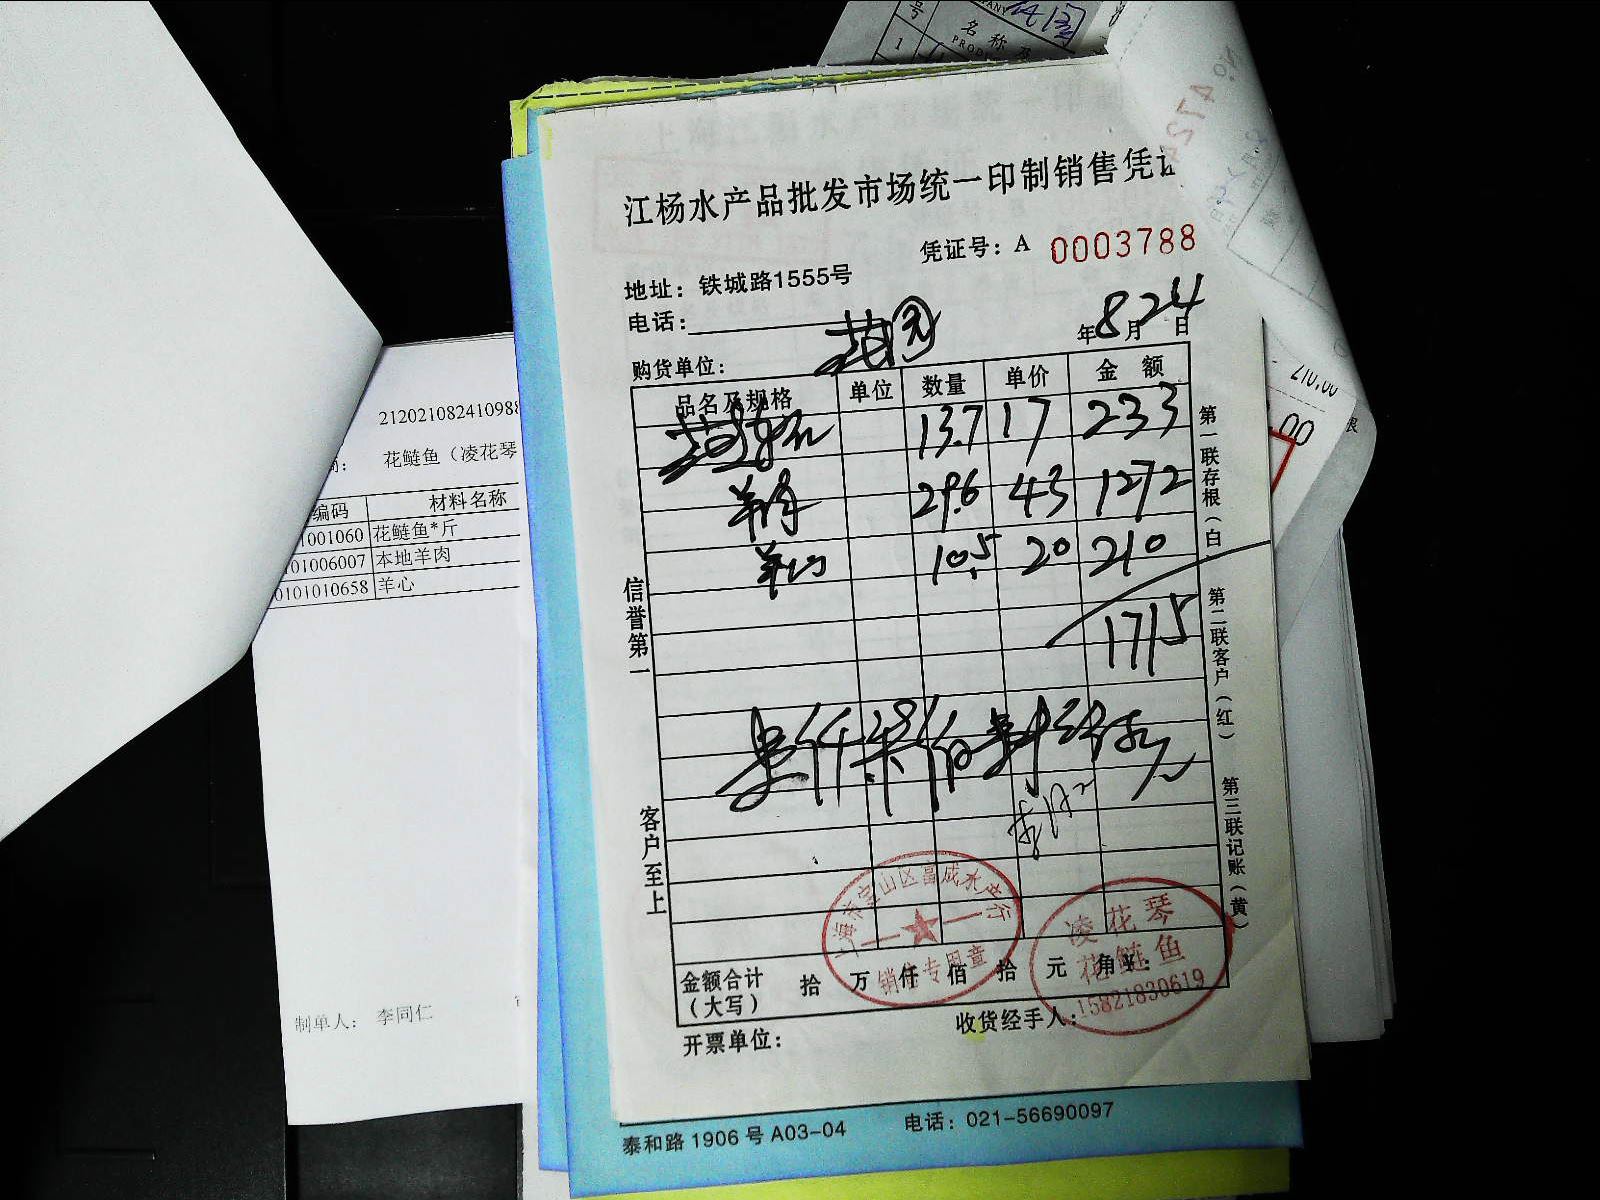 江杨水产品批发市场统一印制销售凭
凭证号：A 0003788
地址：铁城路1555号
电话：
年8月24日
购货单位：
品名及规格 单位 数量 单价 金额
13.7 17 233
羊肉 29.6 43 1272
羊心 10.5 20 210
1715
壹仟柒佰壹拾伍元
信誉第一
客户至上
第一联存根（白）
第二联客户（红）
第三联记账（黄）
上海市宝山区昌成水产行
销售专用章
凌花琴
花鲢鱼
15821830619
金额合计（大写） 拾 万 仟 佰 拾 元 角
开票单位：
收货经手人：
泰和路1906号A03-04 电话：021-56690097
212021082410988
花鲢鱼（凌花琴
编码 材料名称
001060 花鲢鱼*斤
01006007 本地羊肉
0101010658 羊心
制单人： 李同仁
号
名称及
1
210.00
00